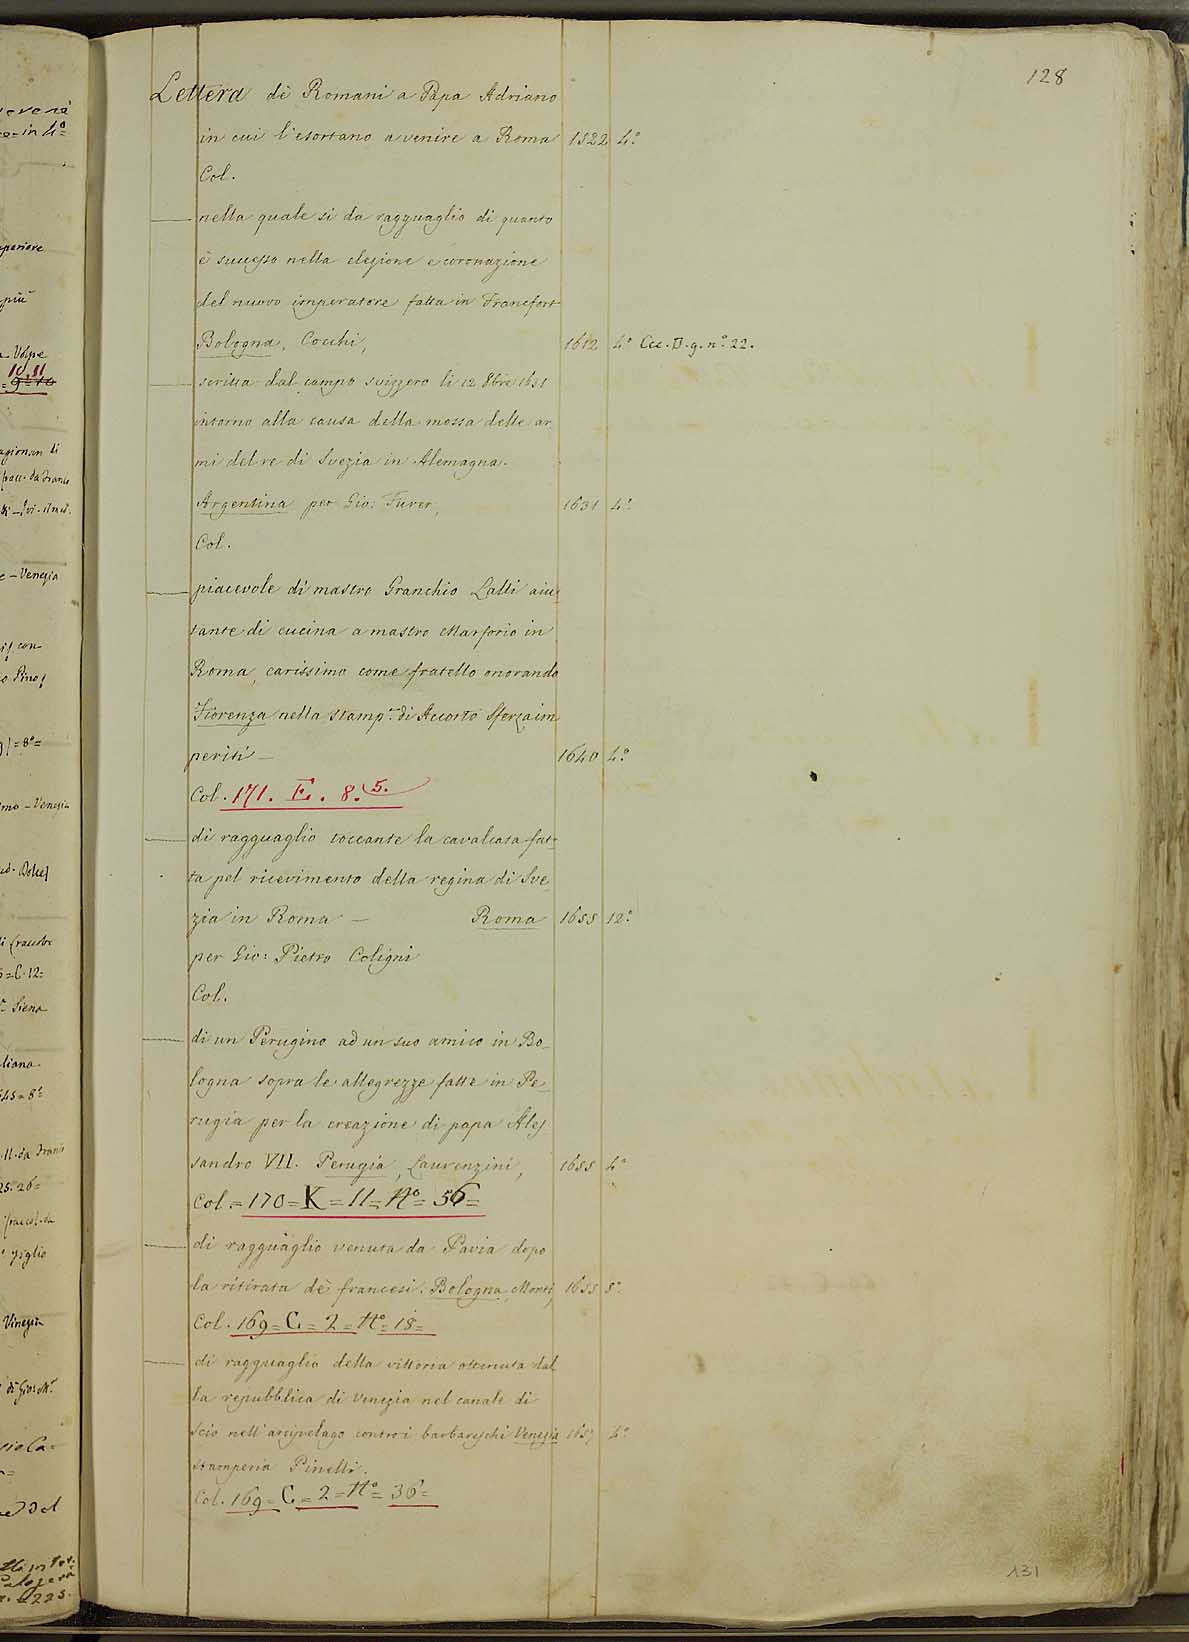 128
Lettera de Romani a Papa Adriano
in cui l'esortano a venire a Roma 1522 4.°
Col.
— nella quale si da ragguaglio di quanto
è successo nella elezione e coronazione
del nuovo imperatore fatta in Francfort
Bologna, Cocchi, 1612 4.° Ccc. D. g. n.° 22.
— scritta dal campo svizzero li 12 8bre 1631
intorno alla causa della mossa delle ar
mi del re di Svezia in Alemagna.
Argentina per Gio: Furer, 1631 4.°
Col.
— piacevole di mastro Granchio Latti aiu=
tante di cucina a mastro Marforio in
Roma, carissimo come fratello onorando
Fiorenza nella stamp.ª di Accorto Sferzaim
periti — 1640 4.°
Col. 171. E. 8. 5.
— di ragguaglio toccante la cavalcata fat=
ta pel ricevimento della regina di Sve
zia in Roma — Roma 1655 12.°
per Gio: Pietro Coligni
Col.
— di un Perugino ad un suo amico in Bo
logna sopra le allegrezze fatte in Pe
rugia per la creazione di papa Ales
sandro VII. Perugia, Laurenzini, 1655 4.°
Col. = 170 = K = 11 = N.° = 56 =
— di ragguaglio venuta da Pavia dopo
la ritirata de francesi. Bologna, Monti, 1655 8.°
Col. 169 = C = 2 = N.° = 18 =
— di ragguaglio della vittoria ottenuta dal
la repubblica di Venezia nel canale di
Scio nell'arcipelago contro i barbareschi Venezia 1657 4.°
stamperia Pinelli.
Col. 169 = C = 2 = N.° = 36 =
131